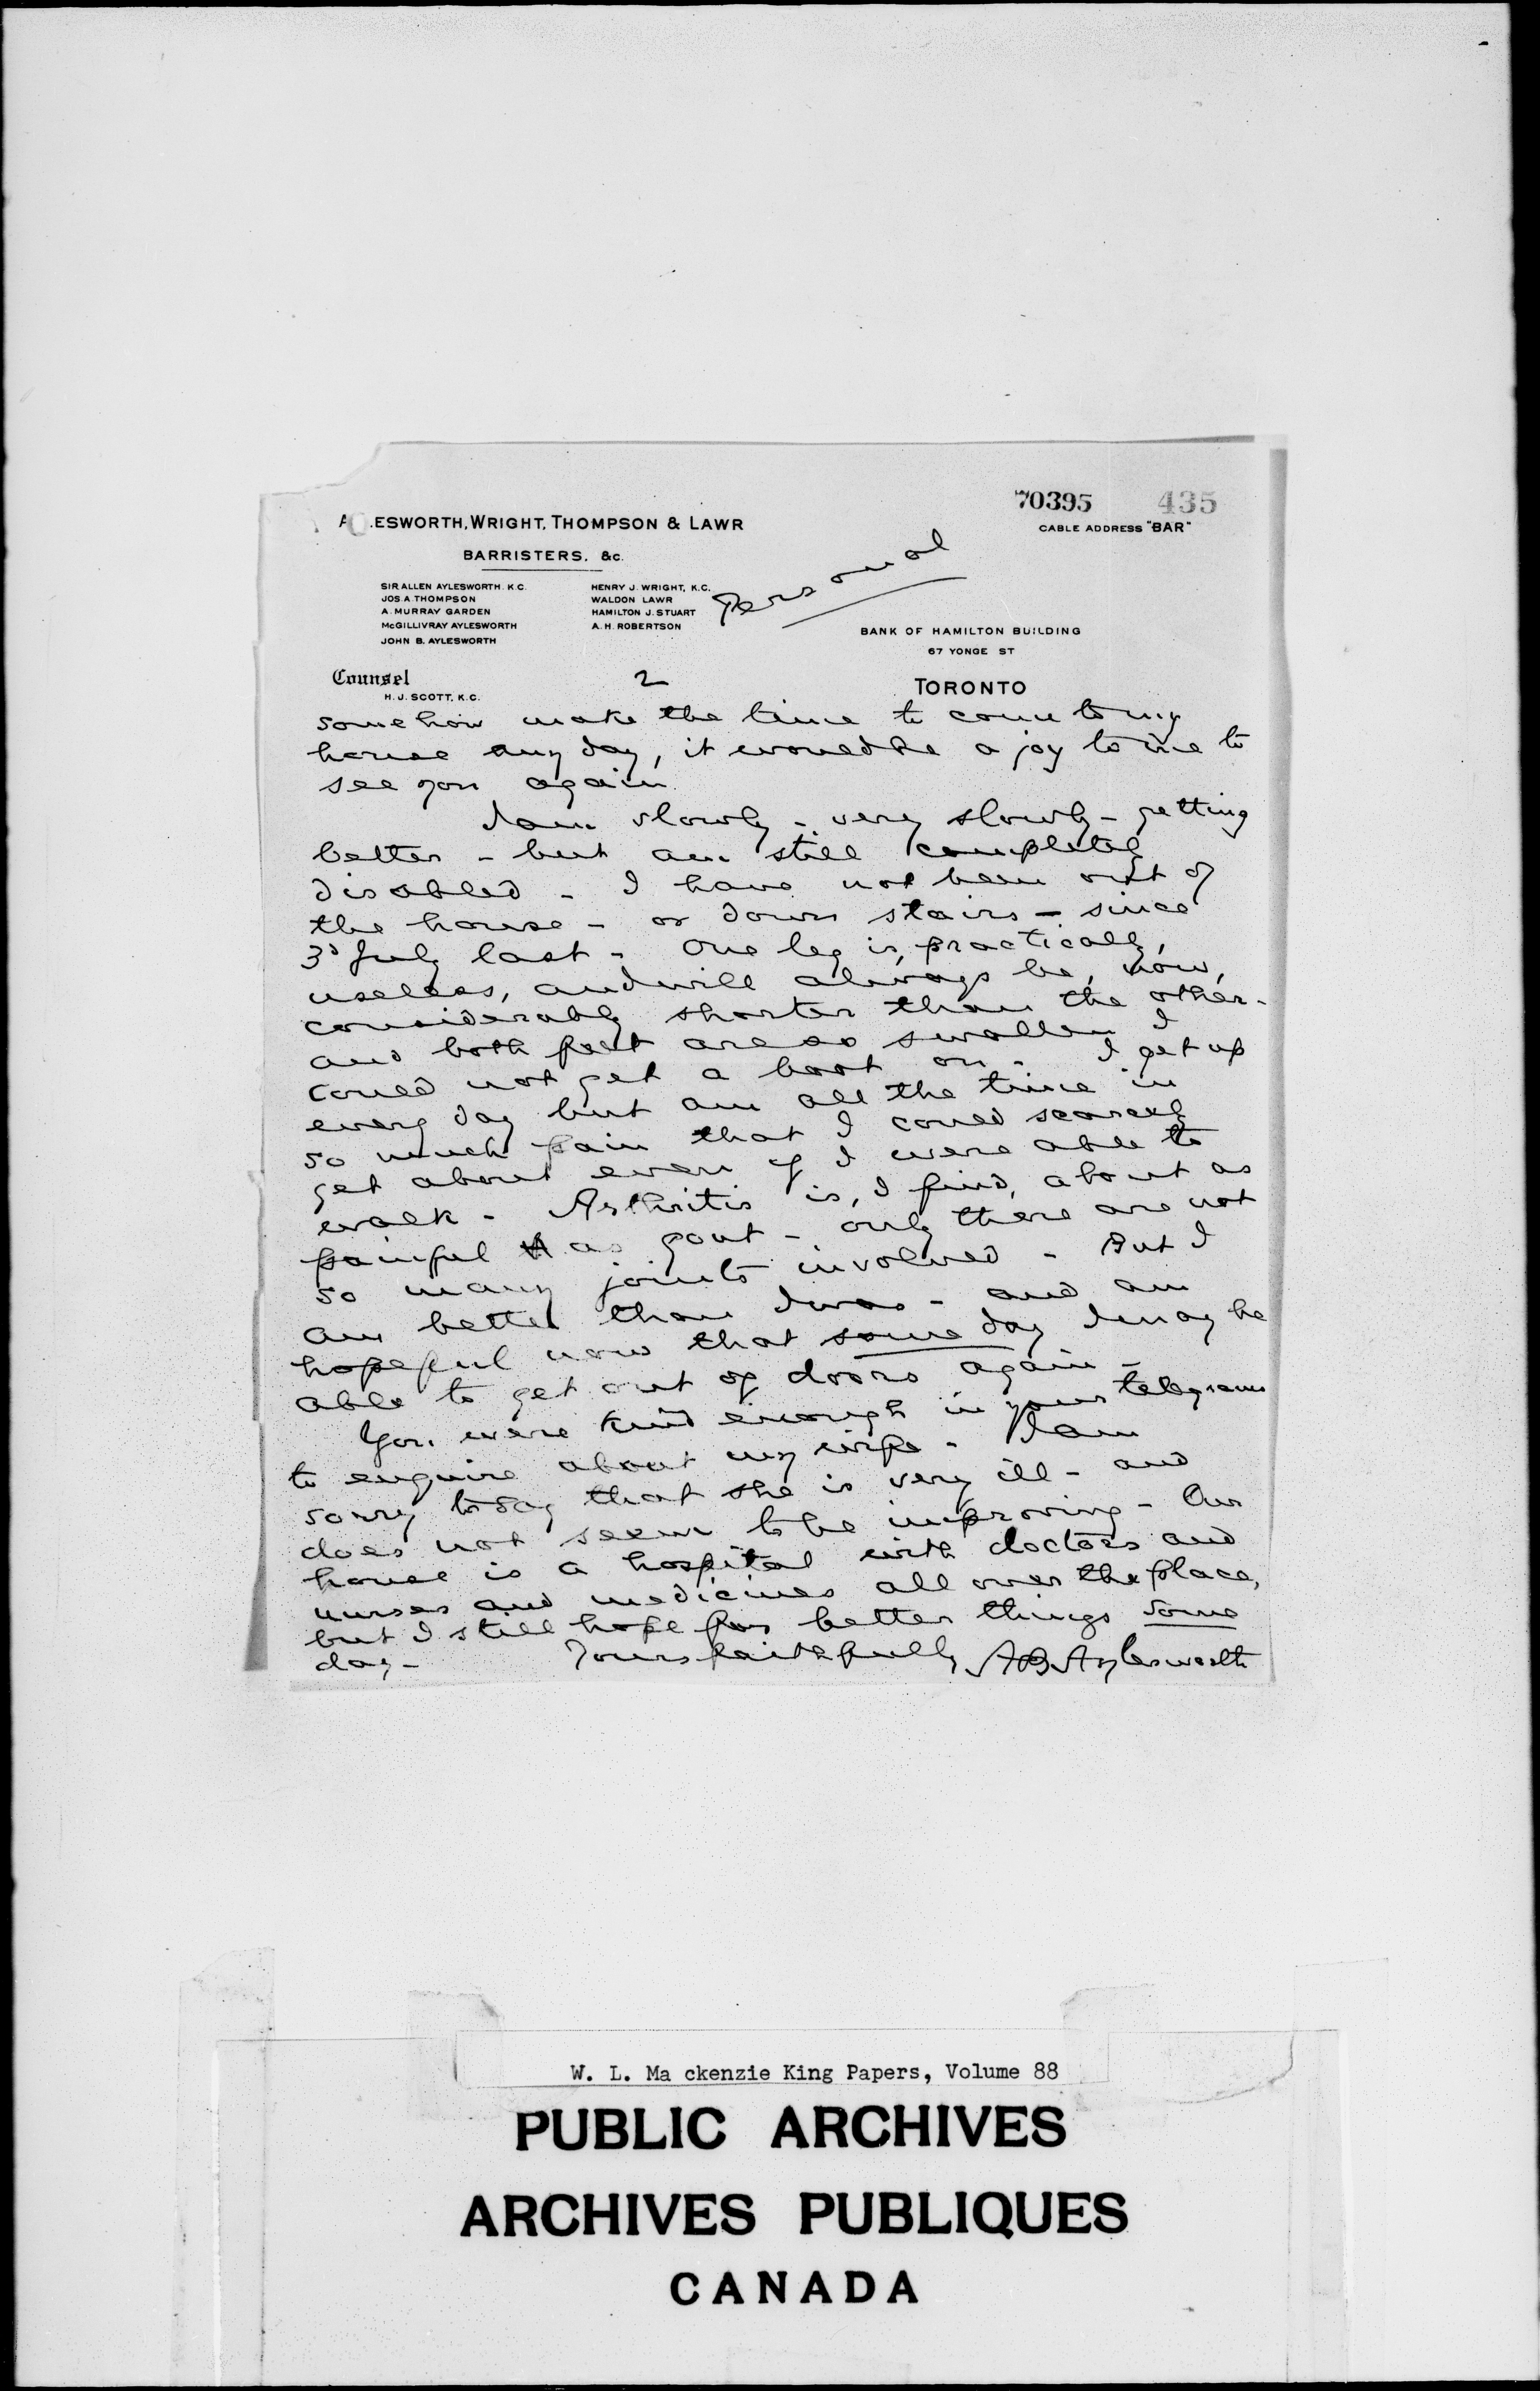 70395 435
AYLESWORTH, WRIGHT, THOMPSON & LAWR
CABLE ADDRESS "BAR"
BARRISTERS, &c.
Personal
SIR ALLEN AYLESWORTH. K.C. HENRY J. WRIGHT, K.C.
JOS. A. THOMPSON WALDON LAWR
A. MURRAY GARDEN HAMILTON J. STUART
McGILLIVRAY AYLESWORTH A. H. ROBERTSON
JOHN B. AYLESWORTH
BANK OF HAMILTON BUILDING
67 YONGE ST
Counsel
H. J. SCOTT, K.C.
2
TORONTO
somehow make the time to come to my
house any day, it would be a joy to me to
see you again.
I am slowly - very slowly - getting
better - but am still completely
disabled - I have not been out of
the house - or down stairs - since
3d July last - One leg is, practically,
useless, and will always be, now,
considerably shorter than the other -
and both feet are so swollen I
could not get a boot on - I get up
every day but am all the time in
so much pain that I could scarcely
get about even if I were able to
walk - Arthritis is, I find, about as
painful as gout - only there are not
so many joints involved - But I
am better than I was - and am
hopeful now that some day I may be
able to get out of doors again -
You were kind enough in your telegram
to enquire about my wife - I am
sorry to say that she is very ill - and
does not seem to be improving - Our
house is a hospital with doctors and
nurses and medicines all over the place,
but I still hope for better things some
day - Yours faithfully A B Aylesworth
W. L. Ma ckenzie King Papers, Volume 88
PUBLIC ARCHIVES
ARCHIVES PUBLIQUES
CANADA